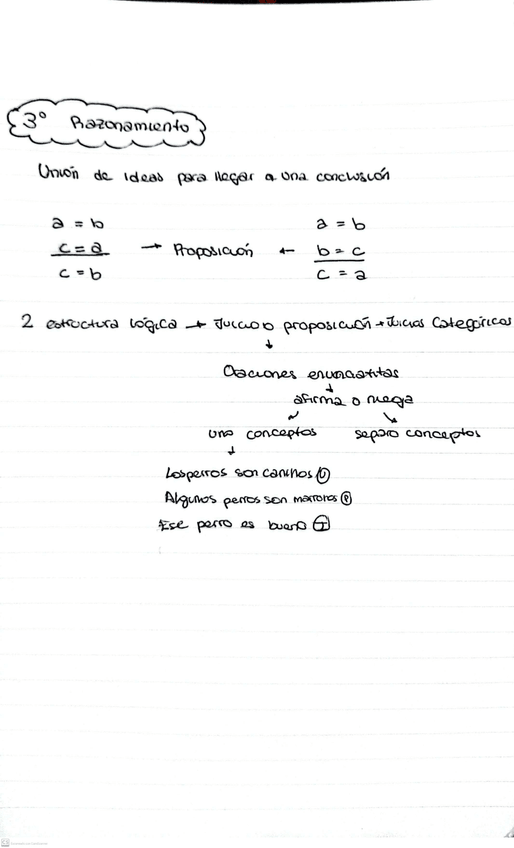 3° Razonamiento
Unión de ideas para llegar a una conclusión
a = b a = b
c = a → Proposición ← b = c
c = b c = a
2 estructura lógica → Juicio o proposición → Juicios Categóricos
↓
Oraciones enunciativas
↓
afirma o niega
uno conceptos separo conceptos
↓
Los perros son caninos Ⓤ
Algunos perros son marrones Ⓟ
Ese perro es bueno